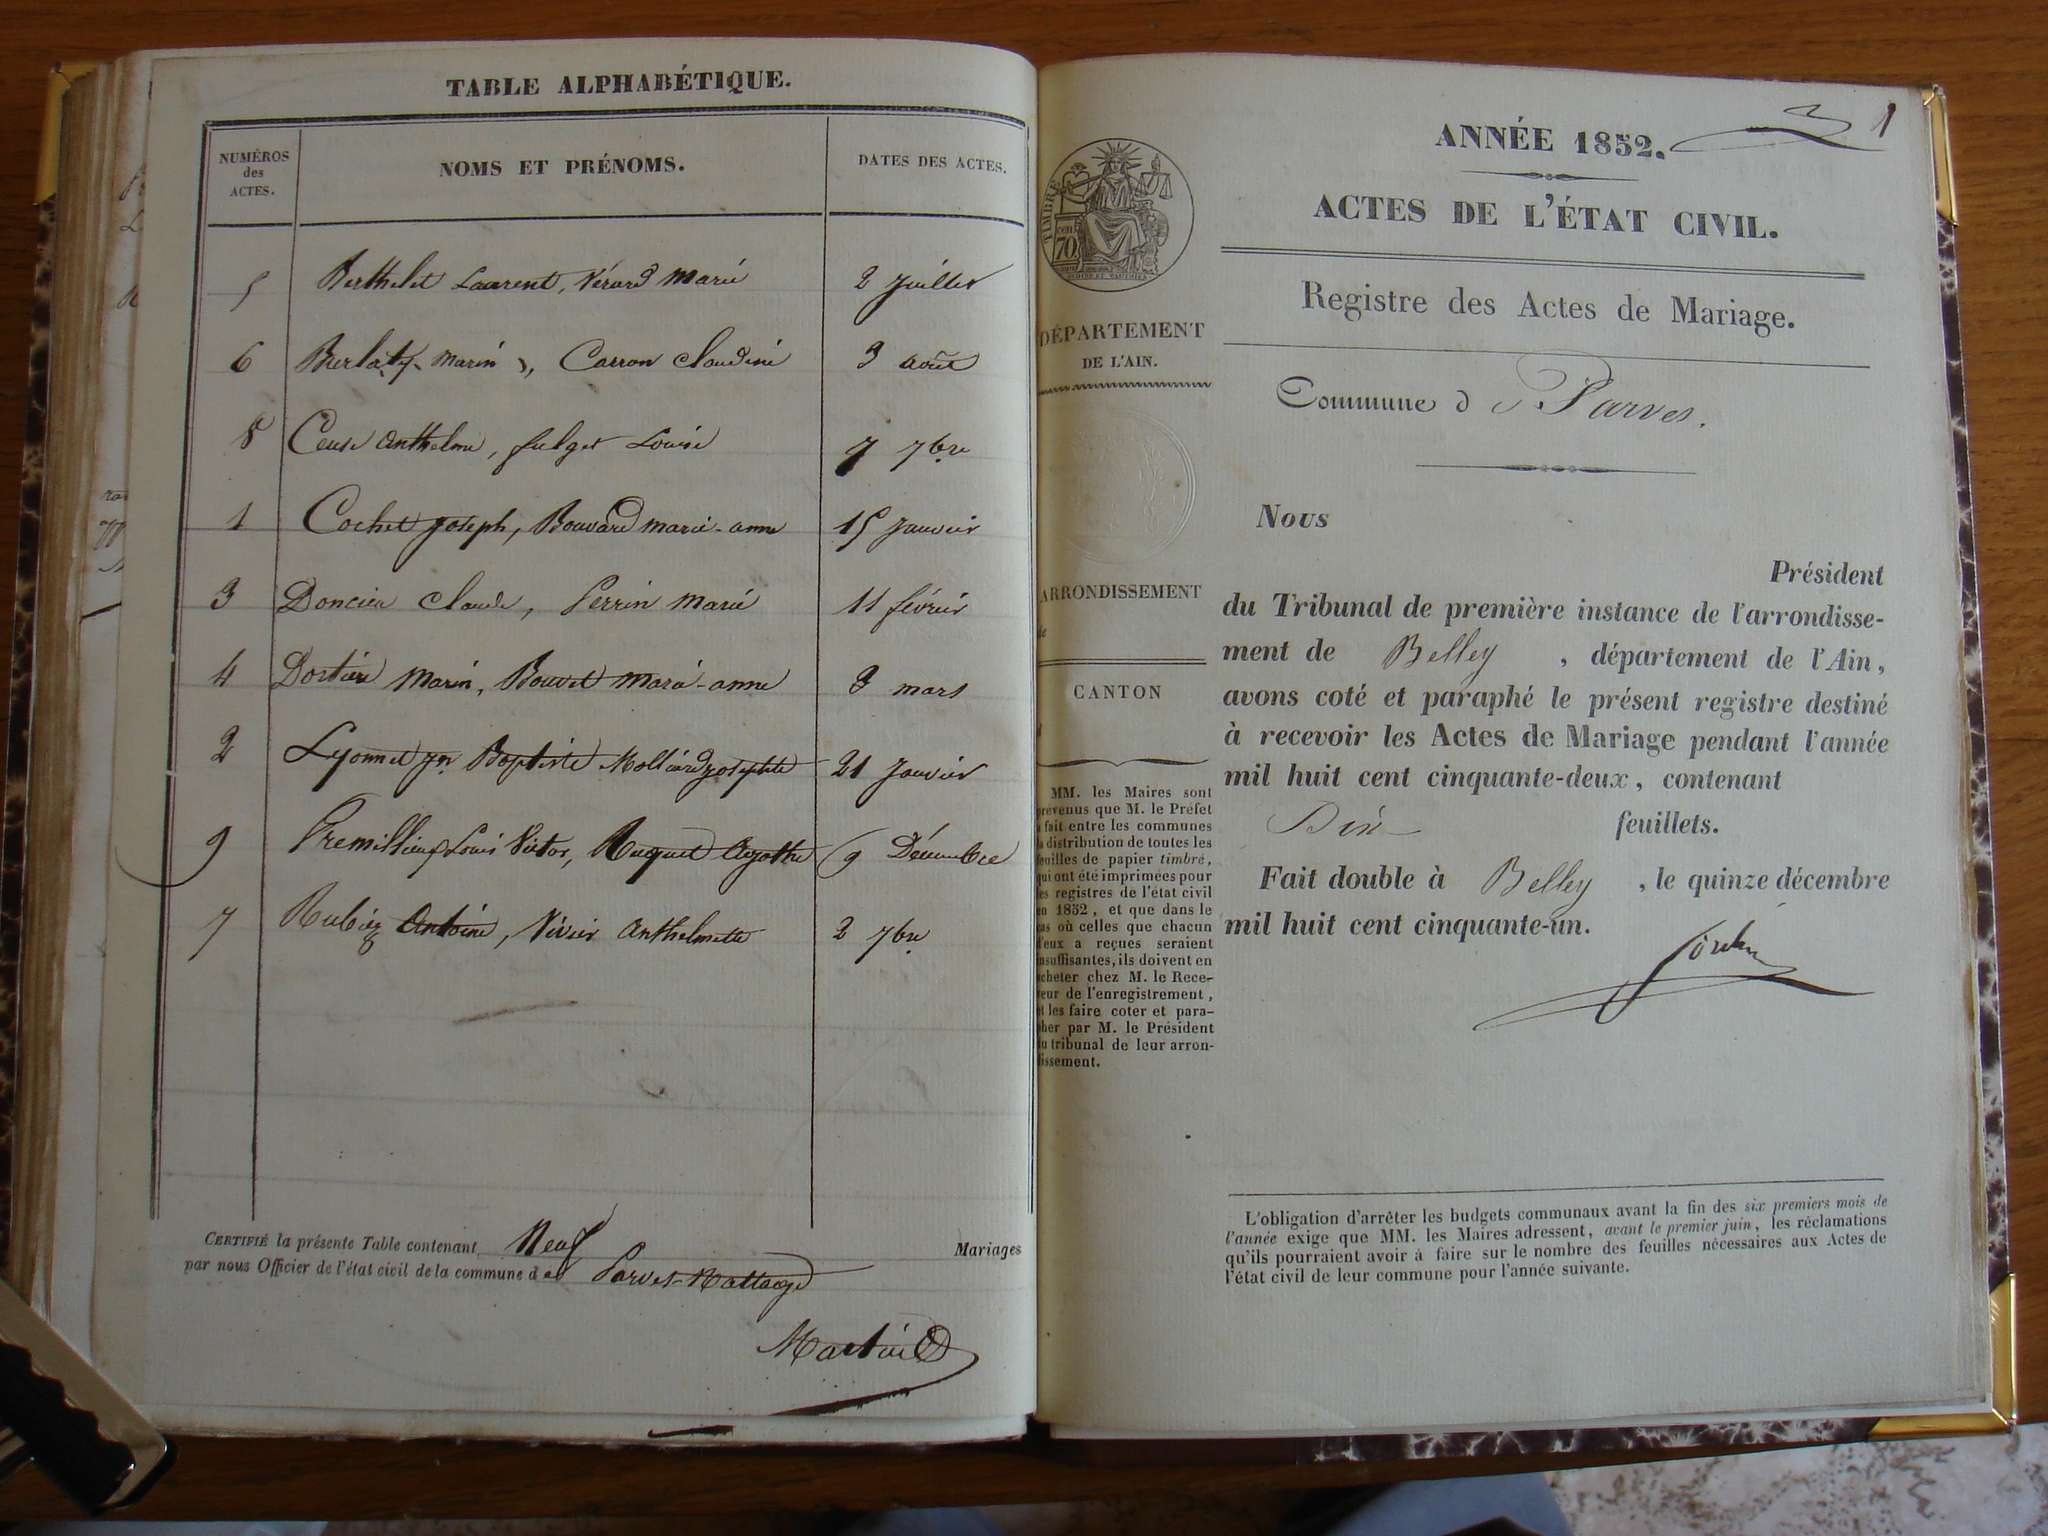 TABLE ALPHABÉTIQUE.
NUMÉROS des ACTES. NOMS ET PRÉNOMS. DATES DES ACTES.
5 Berthelet Laurent, Vérard Marie 2 Juillet
6 Marin, Carron Claudine 3 août
8 Anthelme, Louise 7 7bre
1 Cochet Joseph, Bouvard Marie-anne 15 Janvier
3 Doncieu Claude, Perrin Marie 11 février
4 Marin, Bouvet Marie-anne 3 mars
2 Lyonnet Jn Baptiste Molliard Josephte 21 Janvier
9 Premillieux Louis Victor, Ruquet Agathe 9 Décembre
7 Rubier Antoine, Vivier Anthelmette 2 7bre
CERTIFIÉ la présente Table contenant Neuf Mariages
par nous Officier de l'état civil de la commune de Parves-Nattage
1
ANNÉE 1852.
ACTES DE L'ÉTAT CIVIL.
Registre des Actes de Mariage.
Commune d Parves.
TIMBRE
70
DÉPARTEMENT
DE L'AIN.
ARRONDISSEMENT
CANTON
MM. les Maires sont
prévenus que M. le Préfet
a fait entre les communes
la distribution de toutes les
feuilles de papier timbré,
qui ont été imprimées pour
les registres de l'état civil
en 1852, et que dans le
cas où celles que chacun
d'eux a reçues seraient
insuffisantes, ils doivent en
acheter chez M. le Rece-
veur de l'enregistrement,
et les faire coter et para-
pher par M. le Président
du tribunal de leur arron-
dissement.
Nous
Président
du Tribunal de première instance de l'arrondisse-
ment de Belley, département de l'Ain,
avons coté et paraphé le présent registre destiné
à recevoir les Actes de Mariage pendant l'année
mil huit cent cinquante-deux, contenant
Dix feuillets.
Fait double à Belley, le quinze décembre
mil huit cent cinquante-un.
L'obligation d'arrêter les budgets communaux avant la fin des six premiers mois de
l'année exige que MM. les Maires adressent, avant le premier juin, les réclamations
qu'ils pourraient avoir à faire sur le nombre des feuilles nécessaires aux Actes de
l'état civil de leur commune pour l'année suivante.